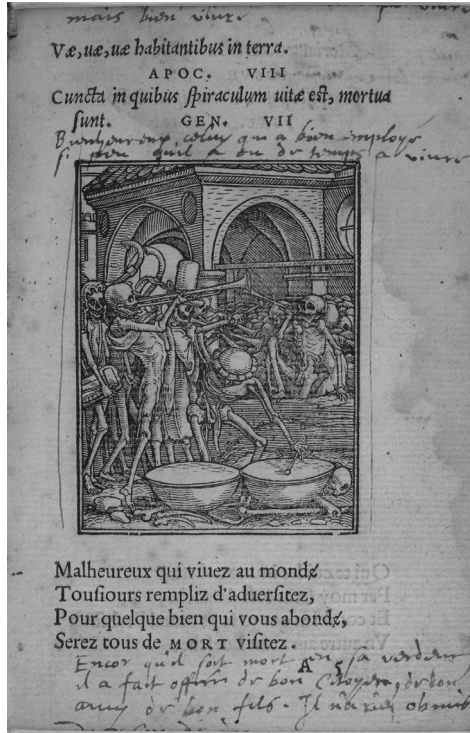 mais bien viure
Væ, uæ, uæ habitantibus in terra.
APOC. VIII
Cuncta in quibus ſpiraculum uitæ eſt, mortua
ſunt. GEN. VII
Bienheureux celuy qui a bien employé
ſi peu qu'il a eu de temps a viure
Malheureux qui viuez au monde̸
Touſiours rempliz d'aduerſitez,
Pour quelque bien qui vous abonde̸,
Serez tous de MORT viſitez.
A 5
Encor qu'il soit mort en sa verdeur
il a fait office de bon Citoyen, de bon
amy de bon fils. Il n'a rien obmis